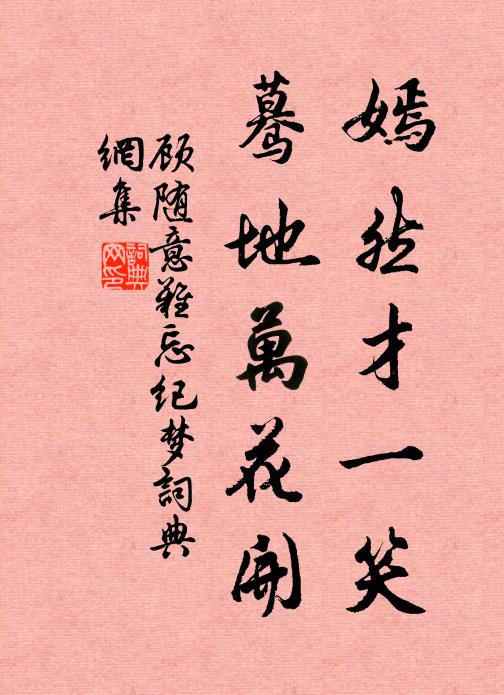 嫣然才一笑
蓦地萬花開
顾随意難忘纪梦詞典
網集
詞典
网印